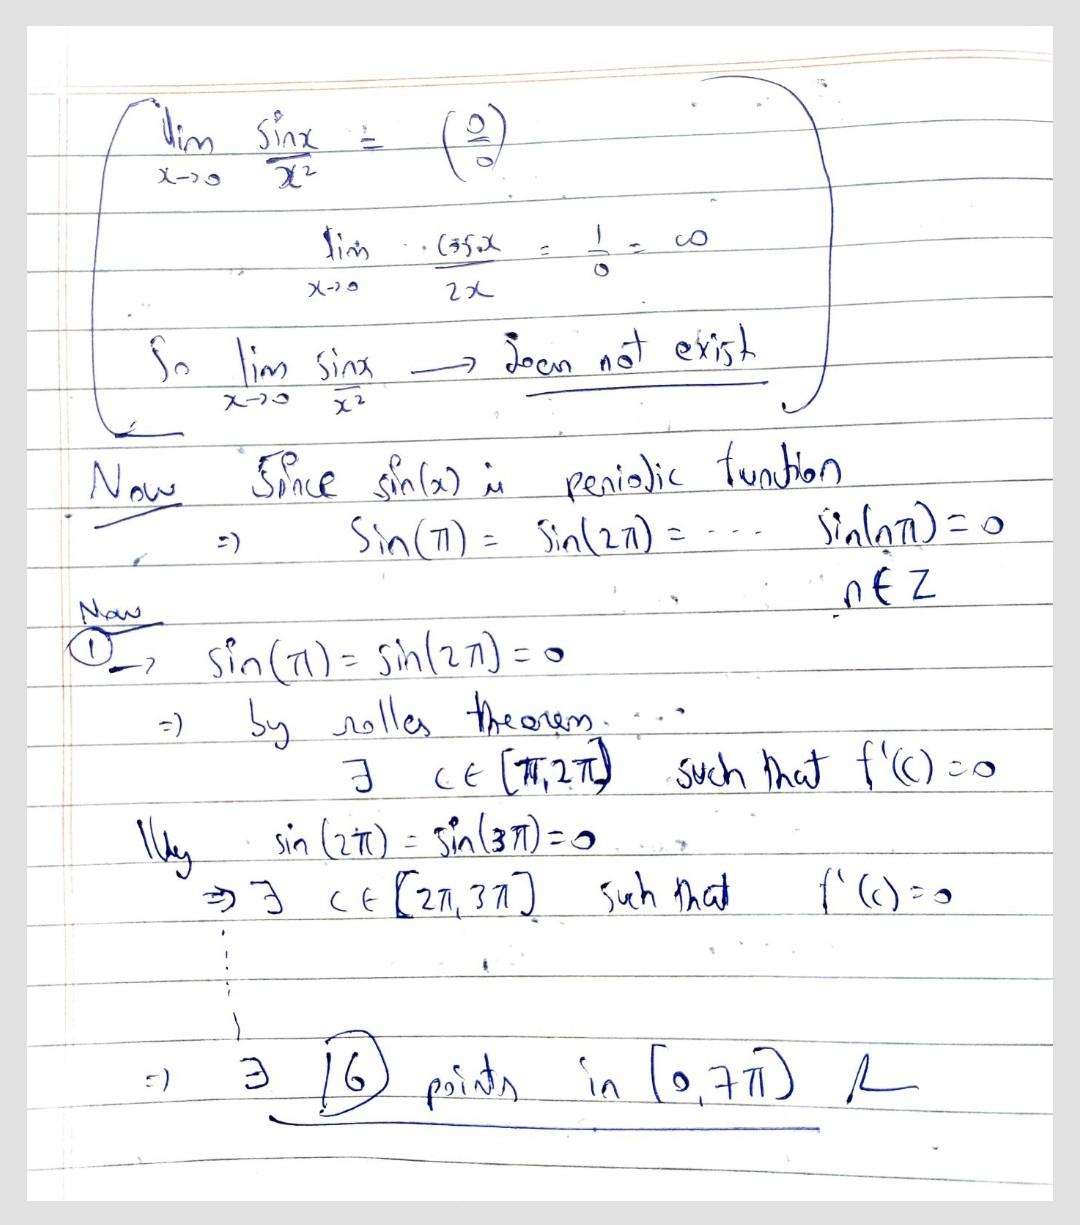 lim sinx/x² = (0/0)
x→0
lim cosx/2x = 1/0 = ∞
x→0
So lim sinx/x² → Does not exist
x→0
Now Since sin(x) is periodic function
⇒ Sin(π) = Sin(2π) = --- Sin(nπ) = 0
n∈Z
Now
① → Sin(π) = Sin(2π) = 0
⇒ by rolles theorem.
∃ c∈[π,2π] such that f'(c)=0
lllly sin(2π) = sin(3π)=0
⇒ ∃ c∈[2π,3π] such that f'(c)=0
⇒ ∃ 6 points in [0,7π)